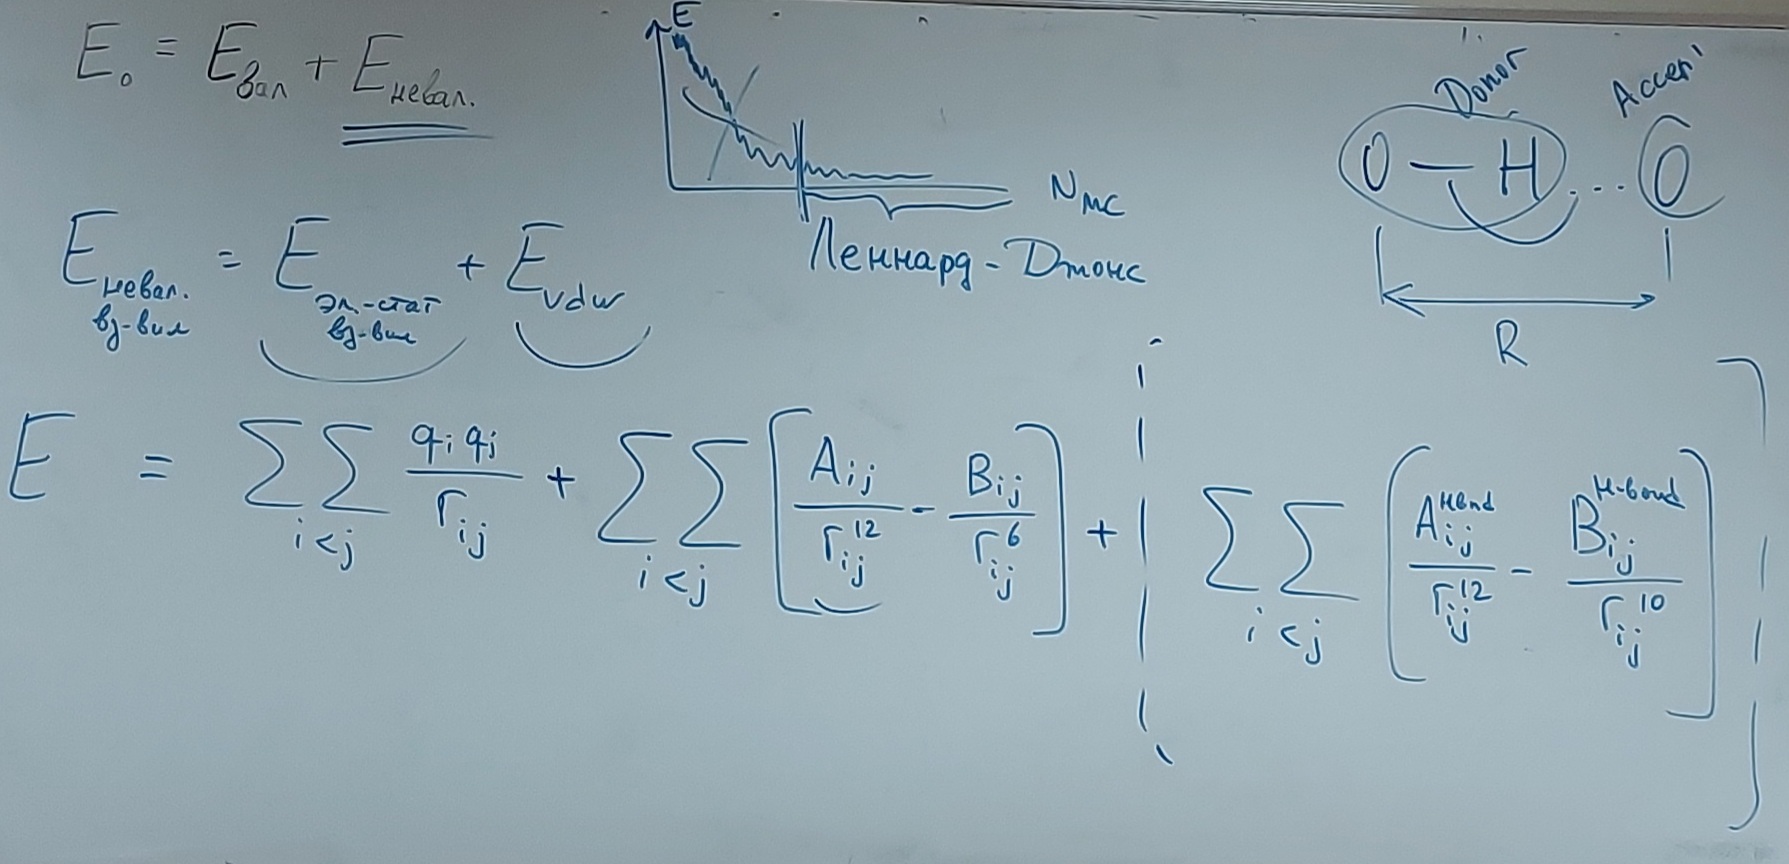 E₀ = E вал + E невал.
E
N мс
Леннард-Джонс
Donor
Accept
O — H ... O
R
E невал. вз-вия = E эл.-стат вз-вия + E vdw
E = ΣΣ i<j qᵢqⱼ / rᵢⱼ + ΣΣ i<j [ Aᵢⱼ / rᵢⱼ¹² - Bᵢⱼ / rᵢⱼ⁶ ] + ΣΣ i<j [ Aᵢⱼ Hbond / rᵢⱼ¹² - Bᵢⱼ H-bond / rᵢⱼ¹⁰ ]